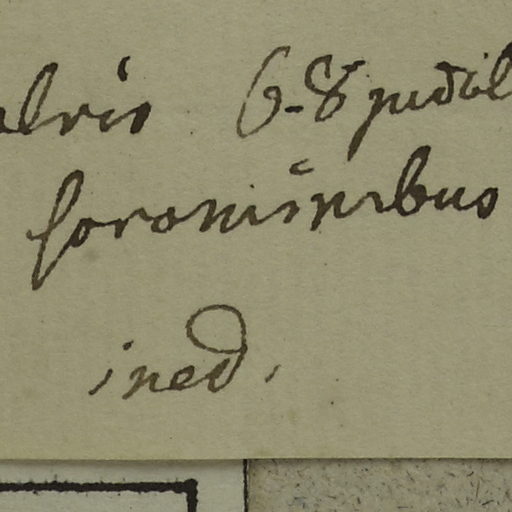 alvis 6-8
foraminibus
ined.